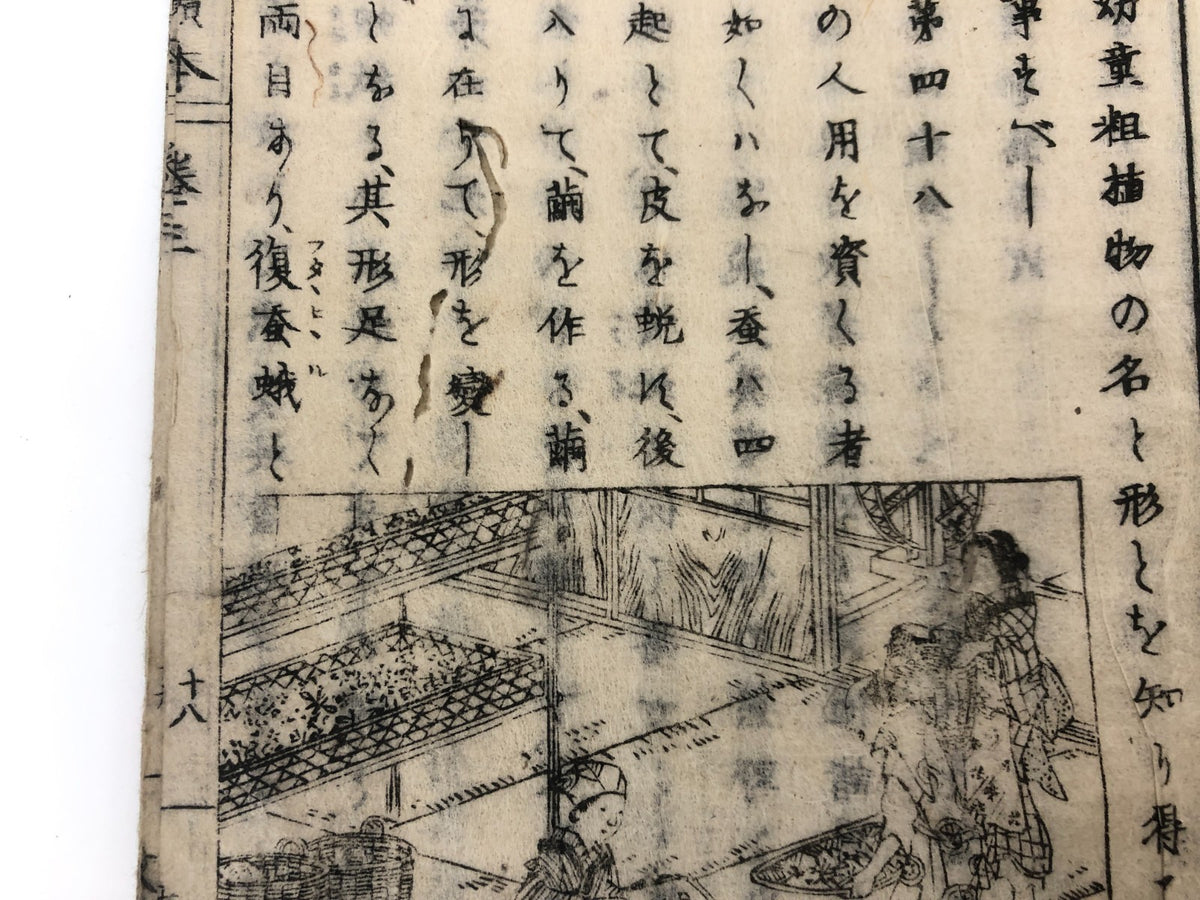 幼童粗植物の名と形とを知り得
事すべし
第四十八
の人用を資くる者
如くハなし、蚕ハ四
起とて、皮を蛻け、後
入りて、繭を作る、繭
に在りて、形を變し
となる、其形足なく
両目あり、復蚕蛾と
フタヽヒヽル
本
巻三
十八